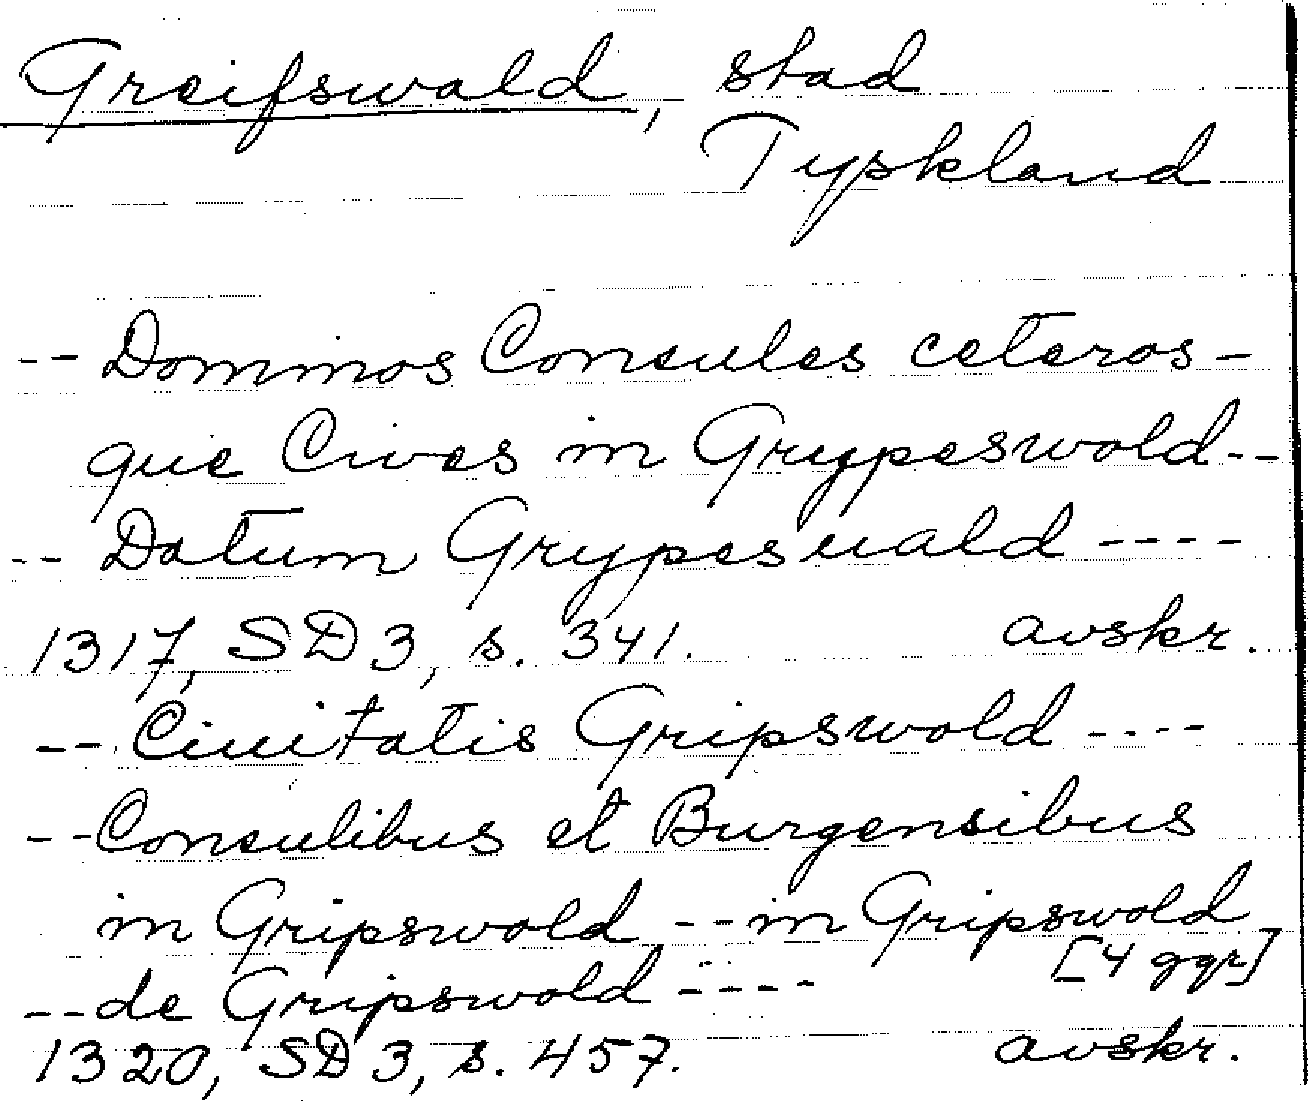 Greifswald, stad
Tyskland
-- Dominos Consules ceteros-
que Cives in Grypeswold--
-- Datum Grypesuald ----
1317, SD 3, s. 341. avskr.
-- Ciuitatis Gripswold ----
-- Consulibus et Burgensibus
in Gripswold -- in Gripswold
[4 ggr]
-- de Gripswold ----
1320, SD 3, s. 457. avskr.